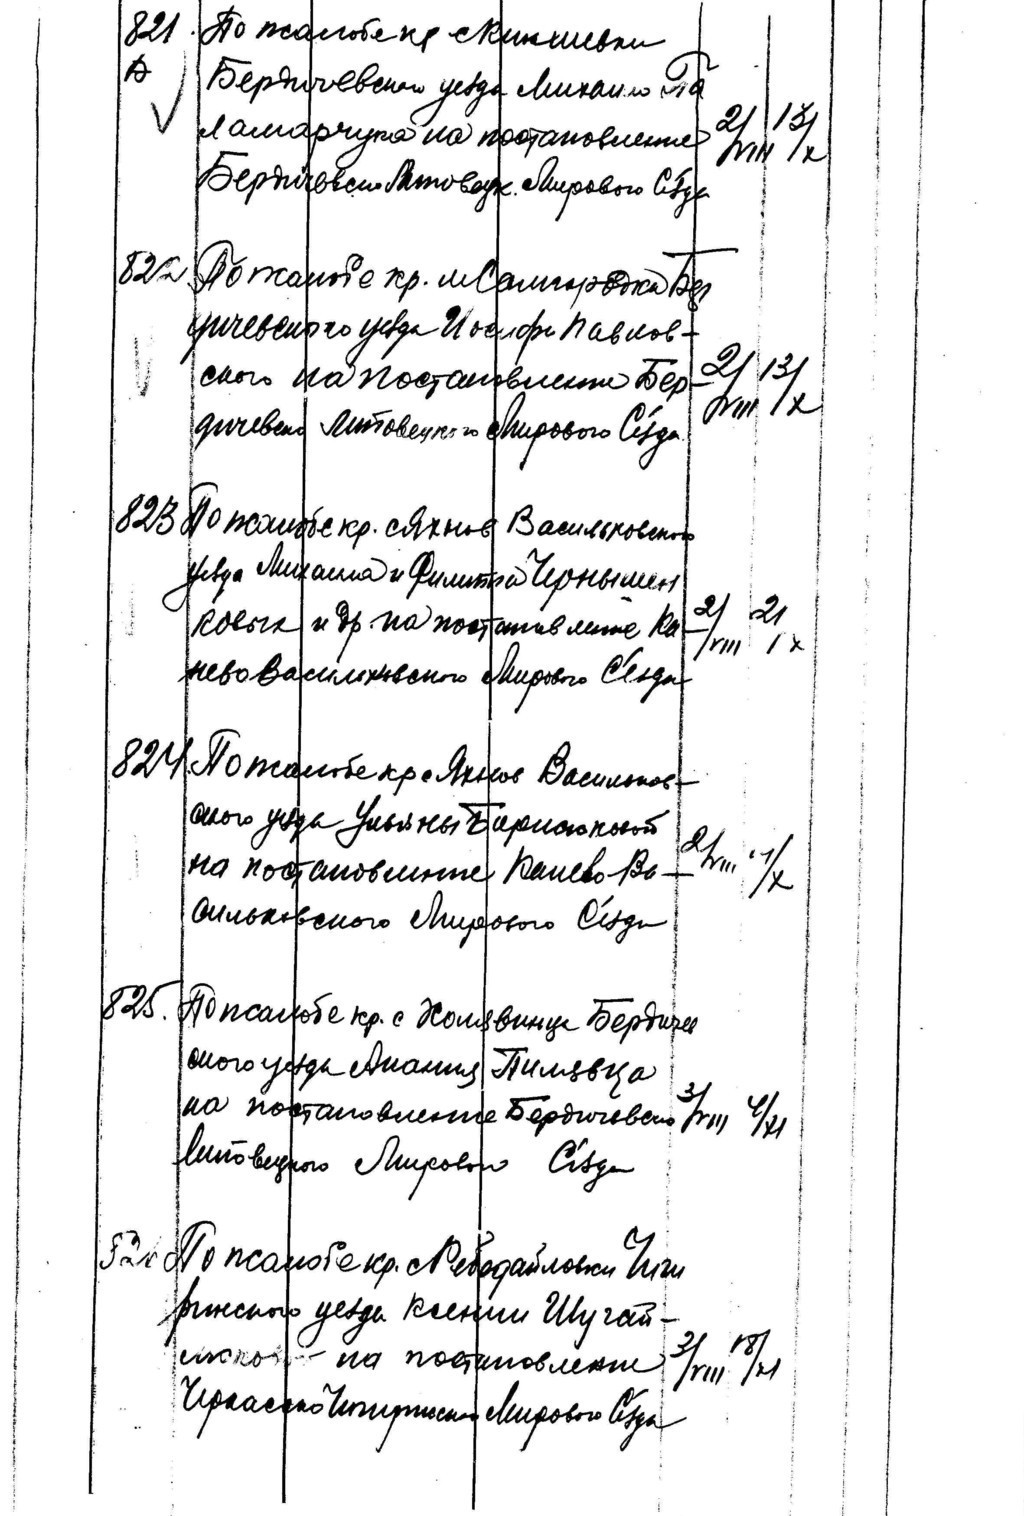 821. По жалобе кр с Кикишевки
А Бердичевского уезда Михаила Па
ламарчука на постановление 2/VIII 13/X
Бердичевско Липовецк. Мирового Съезда
822 По жалобе кр. м Самгородка Бер
дичевского уезда Иосифа Павлов-
ского на постановление Бер- 2/VIII 13/X
дичевско Липовецкого Мирового Съезда
823 По жалобе кр. с Яхнов Васильковского
уезда Михаила и Филиппа Чернышен
ковых и др. на постановление Ка- 2/VIII 21/X
нево Васильковского Мирового Съезда
824 По жалобе кр с Яхнов Васильков-
ского уезда Ульяны Борисюковой
на постановление Канево-Ва- 2/VIII /X
сильковского Мирового Съезда
825. По жалобе кр. с Холявинце Бердичев
ского уезда Анания Пилявца
на постановление Бердичевско 3/VIII 4/XI
Липовецкого Мирового Съезда
826 По жалобе кр. с Ребедайловки Чиги
ринского уезда Ксении Шугай-
на постановление 3/VIII 18/XI
Черкасско Чигиринского Мирового Съезда